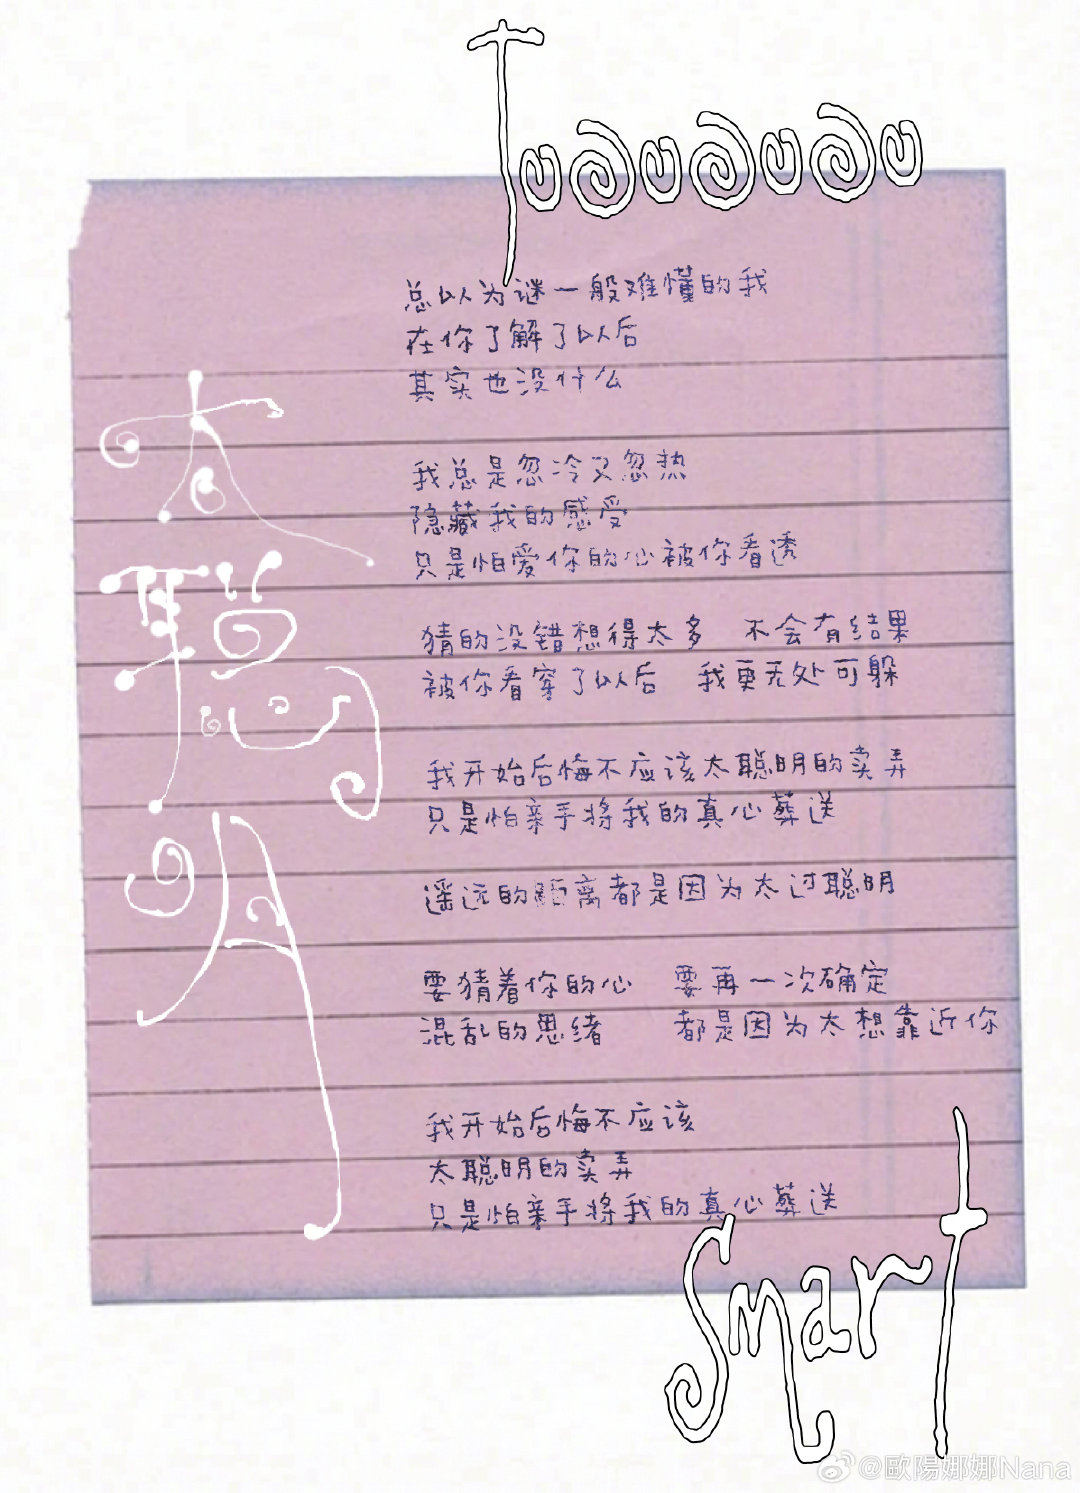 Tududududu
太聰明
总以为谜一般难懂的我
在你了解了以后
其实也没什么
我总是忽冷又忽热
隐藏我的感受
只是怕爱你的心被你看透
猜的没错想得太多 不会有结果
被你看穿了以后 我更无处可躲
我开始后悔不应该太聪明的卖弄
只是怕亲手将我的真心葬送
遥远的距离都是因为太过聪明
要猜着你的心 要再一次确定
混乱的思绪 都是因为太想靠近你
我开始后悔不应该
太聪明的卖弄
只是怕亲手将我的真心葬送
Smart
@歐陽娜娜Nana